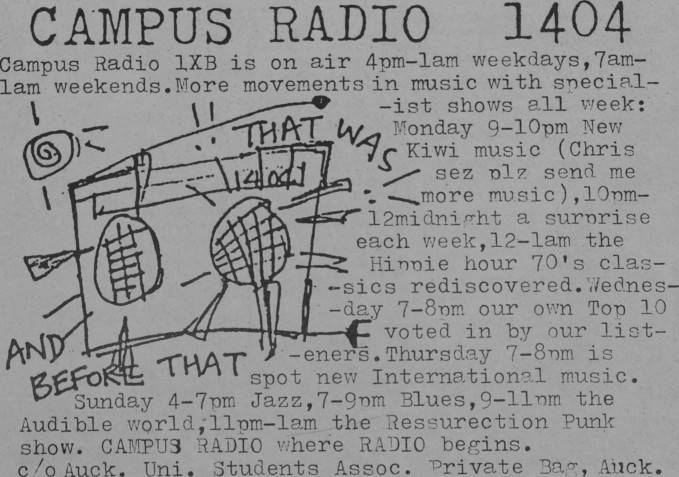 CAMPUS RADIO 1404
Campus Radio 1XB is on air 4pm-1am weekdays,7am-
1am weekends.More movements in music with special-
-ist shows all week:
Monday 9-10pm New
Kiwi music (Chris
sez plz send me
more music),10pm-
12midnight a surprise
each week,12-1am the
Hippie hour 70's clas-
-sics rediscovered.Wednes-
-day 7-8pm our own Top 10
voted in by our list-
-eners.Thursday 7-8pm is
spot new International music.
Sunday 4-7pm Jazz,7-9pm Blues,9-11pm the
Audible world,11pm-1am the Ressurection Punk
show. CAMPUS RADIO where RADIO begins.
c/o Auck. Uni. Students Assoc. Private Bag, Auck.
THAT WAS
1404
AND
BEFORE THAT